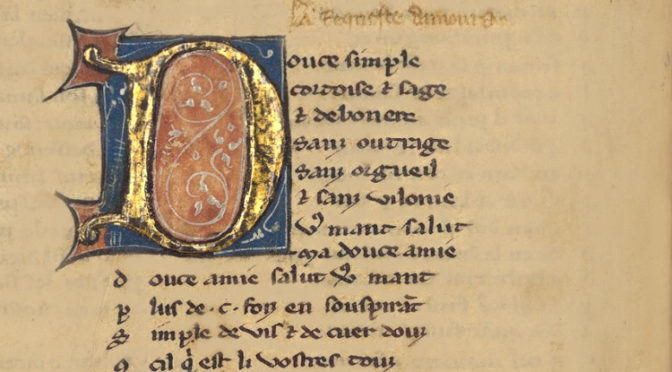 La Requeste damours
Douce simple
cortoise ⁊ sage
⁊ debonere
sanz outrage
sanz orgueil
⁊ sanz vilonie
Vꝰ mant salut
ma douce amie
D ouce amie salut vꝰ mant
P lus de .c. foiz en souspirāt
S imple de vis ⁊ de cuer douz
cil q̇ est li vostres touz